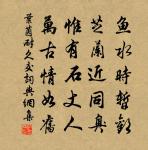 魚水時暫歡
芝蘭近同臭
惟有石丈人
萬古情如舊
葉茵耐久交詞典網集